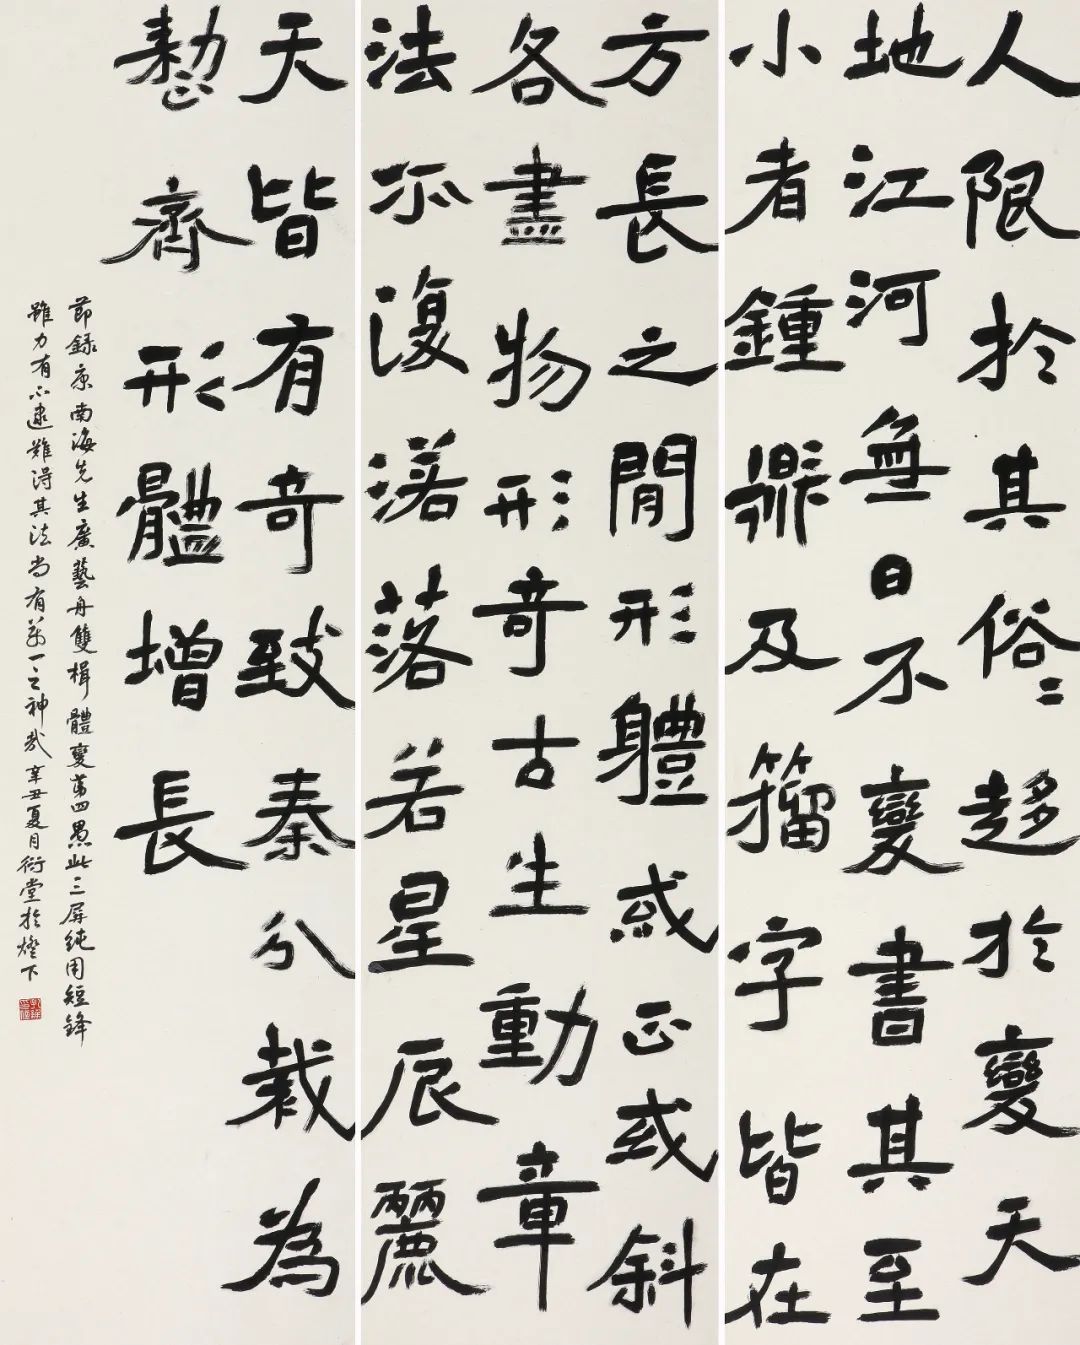 人限於其俗〻趍於變天
地江河無日不變書其至
小者鍾鼎及籀字皆在
方長之閒形體或正或斜
各盡物形奇古生動章
法亦復落落若星辰麗
天皆有奇致秦分裁為
整齊形體增長
節錄康南海先生廣藝舟雙楫體變第四愚此三屏純用短鋒
雖力有不逮難得其法尚有萬一之神哉辛丑夏月衍堂於燈下